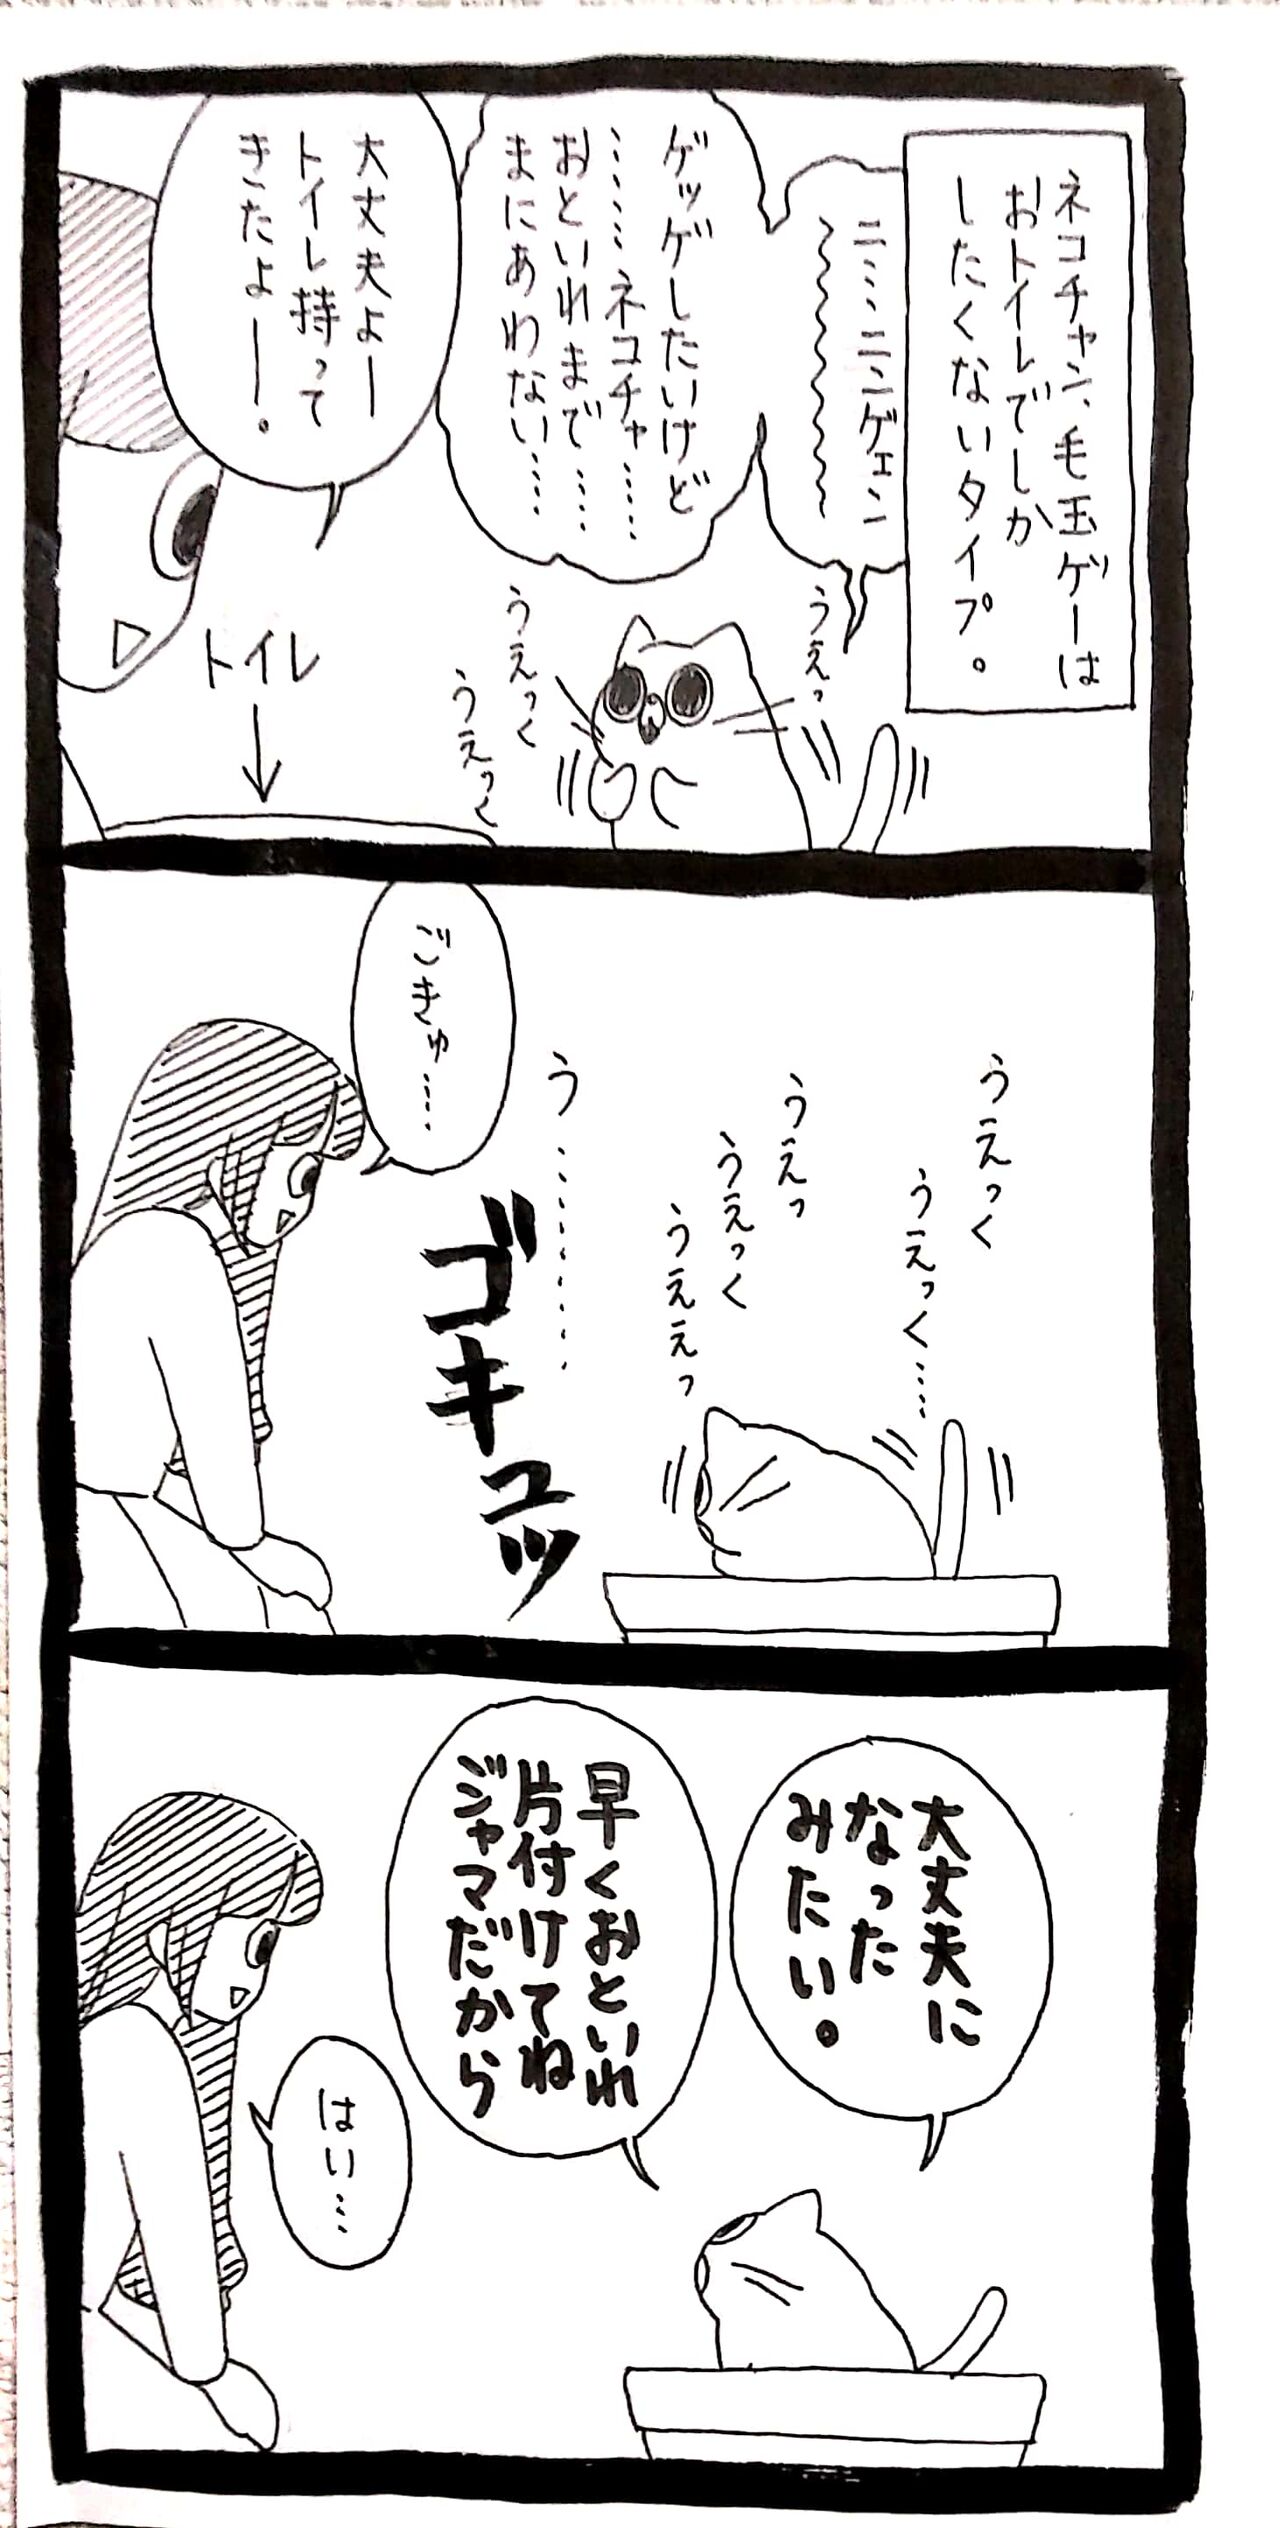 ネコチャン、毛玉ゲーは
おトイレでしか
したくないタイプ。
ニ…ニンゲェン
〜〜〜〜〜〜〜
ゲッゲしたいけど
……ネコチャ……
おといれまで……
まにあわない……
うえっ
うえっく
うえっく
大丈夫よー
トイレ持って
きたよー。
トイレ
うえっく
うえっく…
うえっ
うえっく
うええっ
う………
ゴキュッ
ごきゅ…
大丈夫に
なった
みたい。
早くおといれ
片付けてね
ジャマだから
はい…